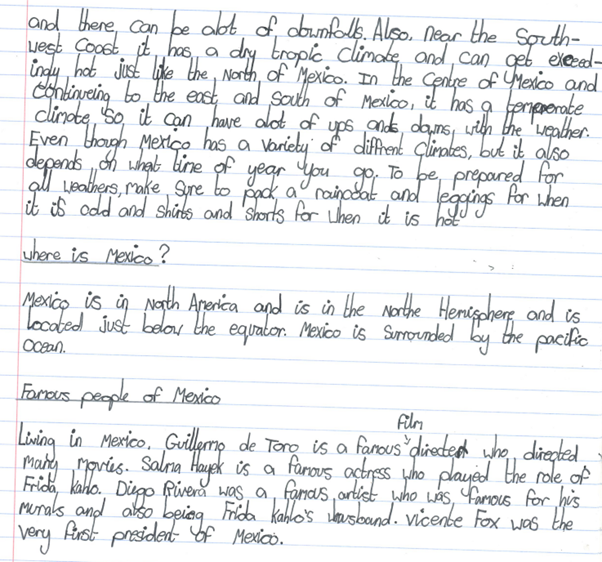 and there can be alot of downfalls. Also, near the South-
west Coast it has a dry tropic climate and can get exceed-
ingly hot just like the North of Mexico. In the Centre of Mexico and
continueing to the east and South of Mexico, it has a temperate
climate, So it can have alot of ups and downs, with the weather.
Even though Mexico has a variety of diffrent climates, but it also
depends on what time of year you go. To be, prepared for
all weathers, make Sure to pack a raincoat and leggings for when
it is cold and shirts and shorts for when it is hot
where is Mexico?
Mexico is in North America and is in the Northe Hemisphere and is
Located just below the equator. Mexico is Surrounded by the pacific
Ocean.
Famous people of Mexico
film
Living in Mexico, Guillermo de Toro is a famous director who directed
many movies. Salma Hayek is a famous actress who played the role of
Frida Kahlo. Diego Rivera was a famous artist who was famous for his
murals and also being Frida Kahlo's husband. Vicente Fox was the
very first president of Mexico.